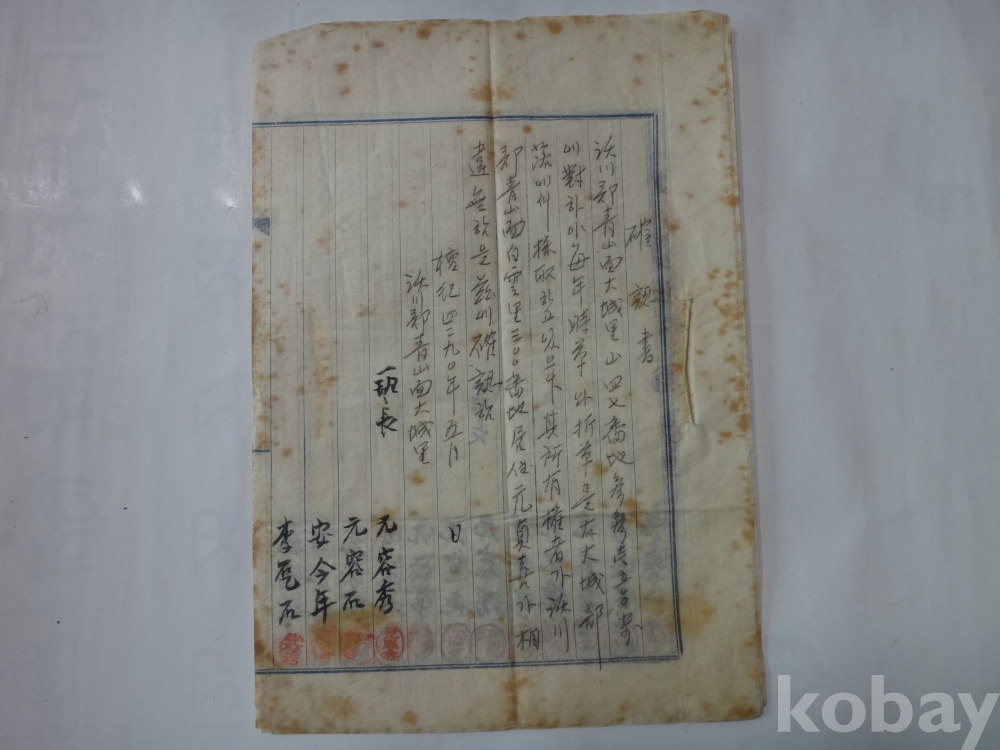 確認書
沃川郡青山面大城里山四七番地
에對하야每年時草 外折草를右大城部
落에서採取하고있으나其所有權者가沃川
郡青山面白雲里三〇〇番地居住元貞喜가相
違無함을玆에確認함
檀紀四二九〇年五月 日
沃川郡青山面大城里
班長 元容秀
元容石
安今年
李 石
kobay